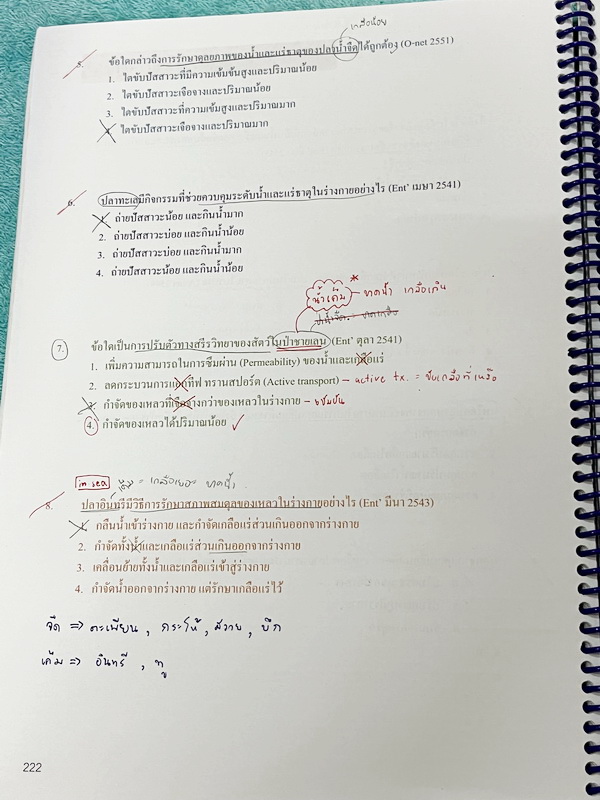 เกลือน้อย
5. ข้อใดกล่าวถึงการรักษาดุลยภาพของน้ำและแร่ธาตุของปลาน้ำจืดได้ถูกต้อง (O-net 2551)
1. ไตขับปัสสาวะที่มีความเข้มข้นสูงและปริมาณน้อย
2. ไตขับปัสสาวะเจือจางและปริมาณน้อย
3. ไตขับปัสสาวะที่ความเข้มสูงและปริมาณมาก
4. ไตขับปัสสาวะเจือจางและปริมาณมาก
6. ปลาทะเลมีกิจกรรมที่ช่วยควบคุมระดับน้ำและแร่ธาตุในร่างกายอย่างไร (Ent' เมษา 2541)
1. ถ่ายปัสสาวะน้อย และกินน้ำมาก
2. ถ่ายปัสสาวะบ่อย และกินน้ำน้อย
3. ถ่ายปัสสาวะบ่อย และกินน้ำมาก
4. ถ่ายปัสสาวะน้อย และกินน้ำน้อย
น้ำเค็ม * – ขาดน้ำ เกลือเกิน
7. ข้อใดเป็นการปรับตัวทางสรีรวิทยาของสัตว์ในป่าชายเลน (Ent' ตุลา 2541)
1. เพิ่มความสามารถในการซึมผ่าน (Permeability) ของน้ำและเกลือแร่
2. ลดกระบวนการแอกทีฟ ทรานสปอร์ต (Active transport) – active tx. = ขับเกลือที่เหลือ
3. กำจัดของเหลวที่เจือจางกว่าของเหลวในร่างกาย – เข้มข้น
4. กำจัดของเหลวได้ปริมาณน้อย ✓
in sea เค็ม = เกลือเยอะ ขาดน้ำ
8. ปลาอินทรีมีวิธีการรักษาสภาพสมดุลของเหลวในร่างกายอย่างไร (Ent' มีนา 2543)
1. กลืนน้ำเข้าร่างกาย และกำจัดเกลือแร่ส่วนเกินออกจากร่างกาย
2. กำจัดทั้งน้ำและเกลือแร่ส่วนเกินออกจากร่างกาย
3. เคลื่อนย้ายทั้งน้ำและเกลือแร่เข้าสู่ร่างกาย
4. กำจัดน้ำออกจากร่างกาย แต่รักษาเกลือแร่ไว้
จืด => ตะเพียน , กระโห้ , สวาย , บึก
เค็ม => อินทรี , ทู
222